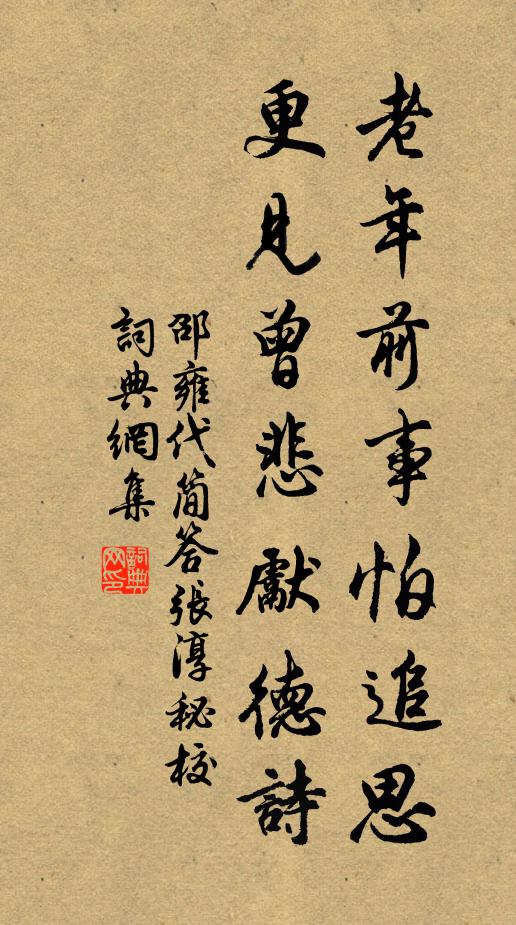 老年前事怕追思
更見曾悲獻德詩
邵雍代简答張淳秘校
詞典網集
詞典网印